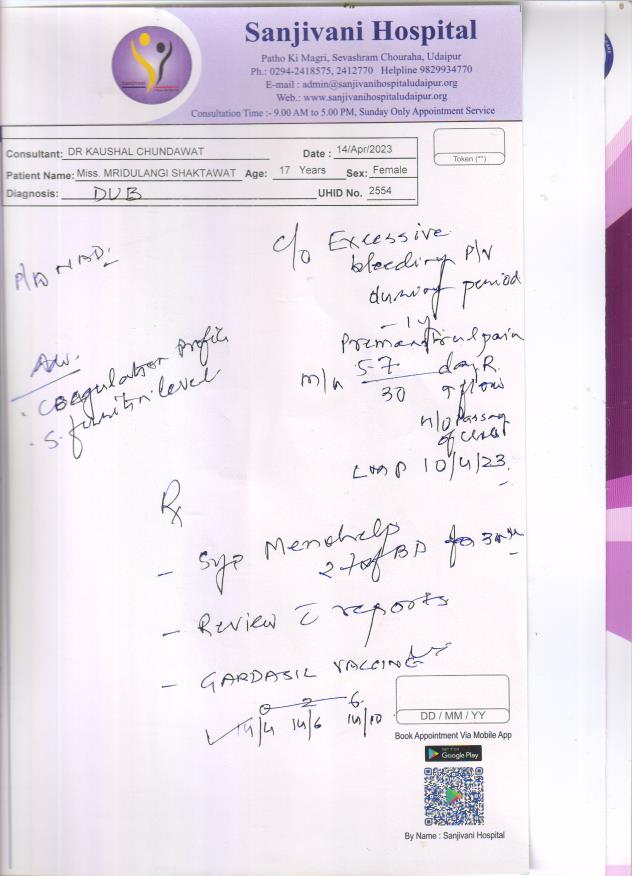 Sanjivani Hospital
Patho Ki Magri, Sevashram Chouraha, Udaipur
Ph.: 0294-2418575, 2412770 Helpline 9829934770
E-mail : admin@sanjivanihospitaludaipur.org
Web.: www.sanjivanihospitaludaipur.org
Consultation Time :- 9.00 AM to 5.00 PM, Sunday Only Appointment Service
Consultant: DR KAUSHAL CHUNDAWAT Date : 14/Apr/2023
Token (**)
Patient Name: Miss. MRIDULANGI SHAKTAWAT Age: 17 Years Sex: Female
Diagnosis: DUB UHID No. 2554
P/A NAD.
C/O Excessive
bleeding P/V
during period
- 1 y
Premenstrual pain
M/H 5-7 days R.
30 flow
H/O Passage
of
LMP 10/4/23.
Adv.
. Coagulation Profile
. S. level
Rx
- Syp Menohelp
2 tsf BD for 3
- Review c reports
- GARDASIL VACCINE
0 2 6
14/4 14/6 14/10
DD / MM / YY
Book Appointment Via Mobile App
GET IT ON
Google Play
By Name : Sanjivani Hospital